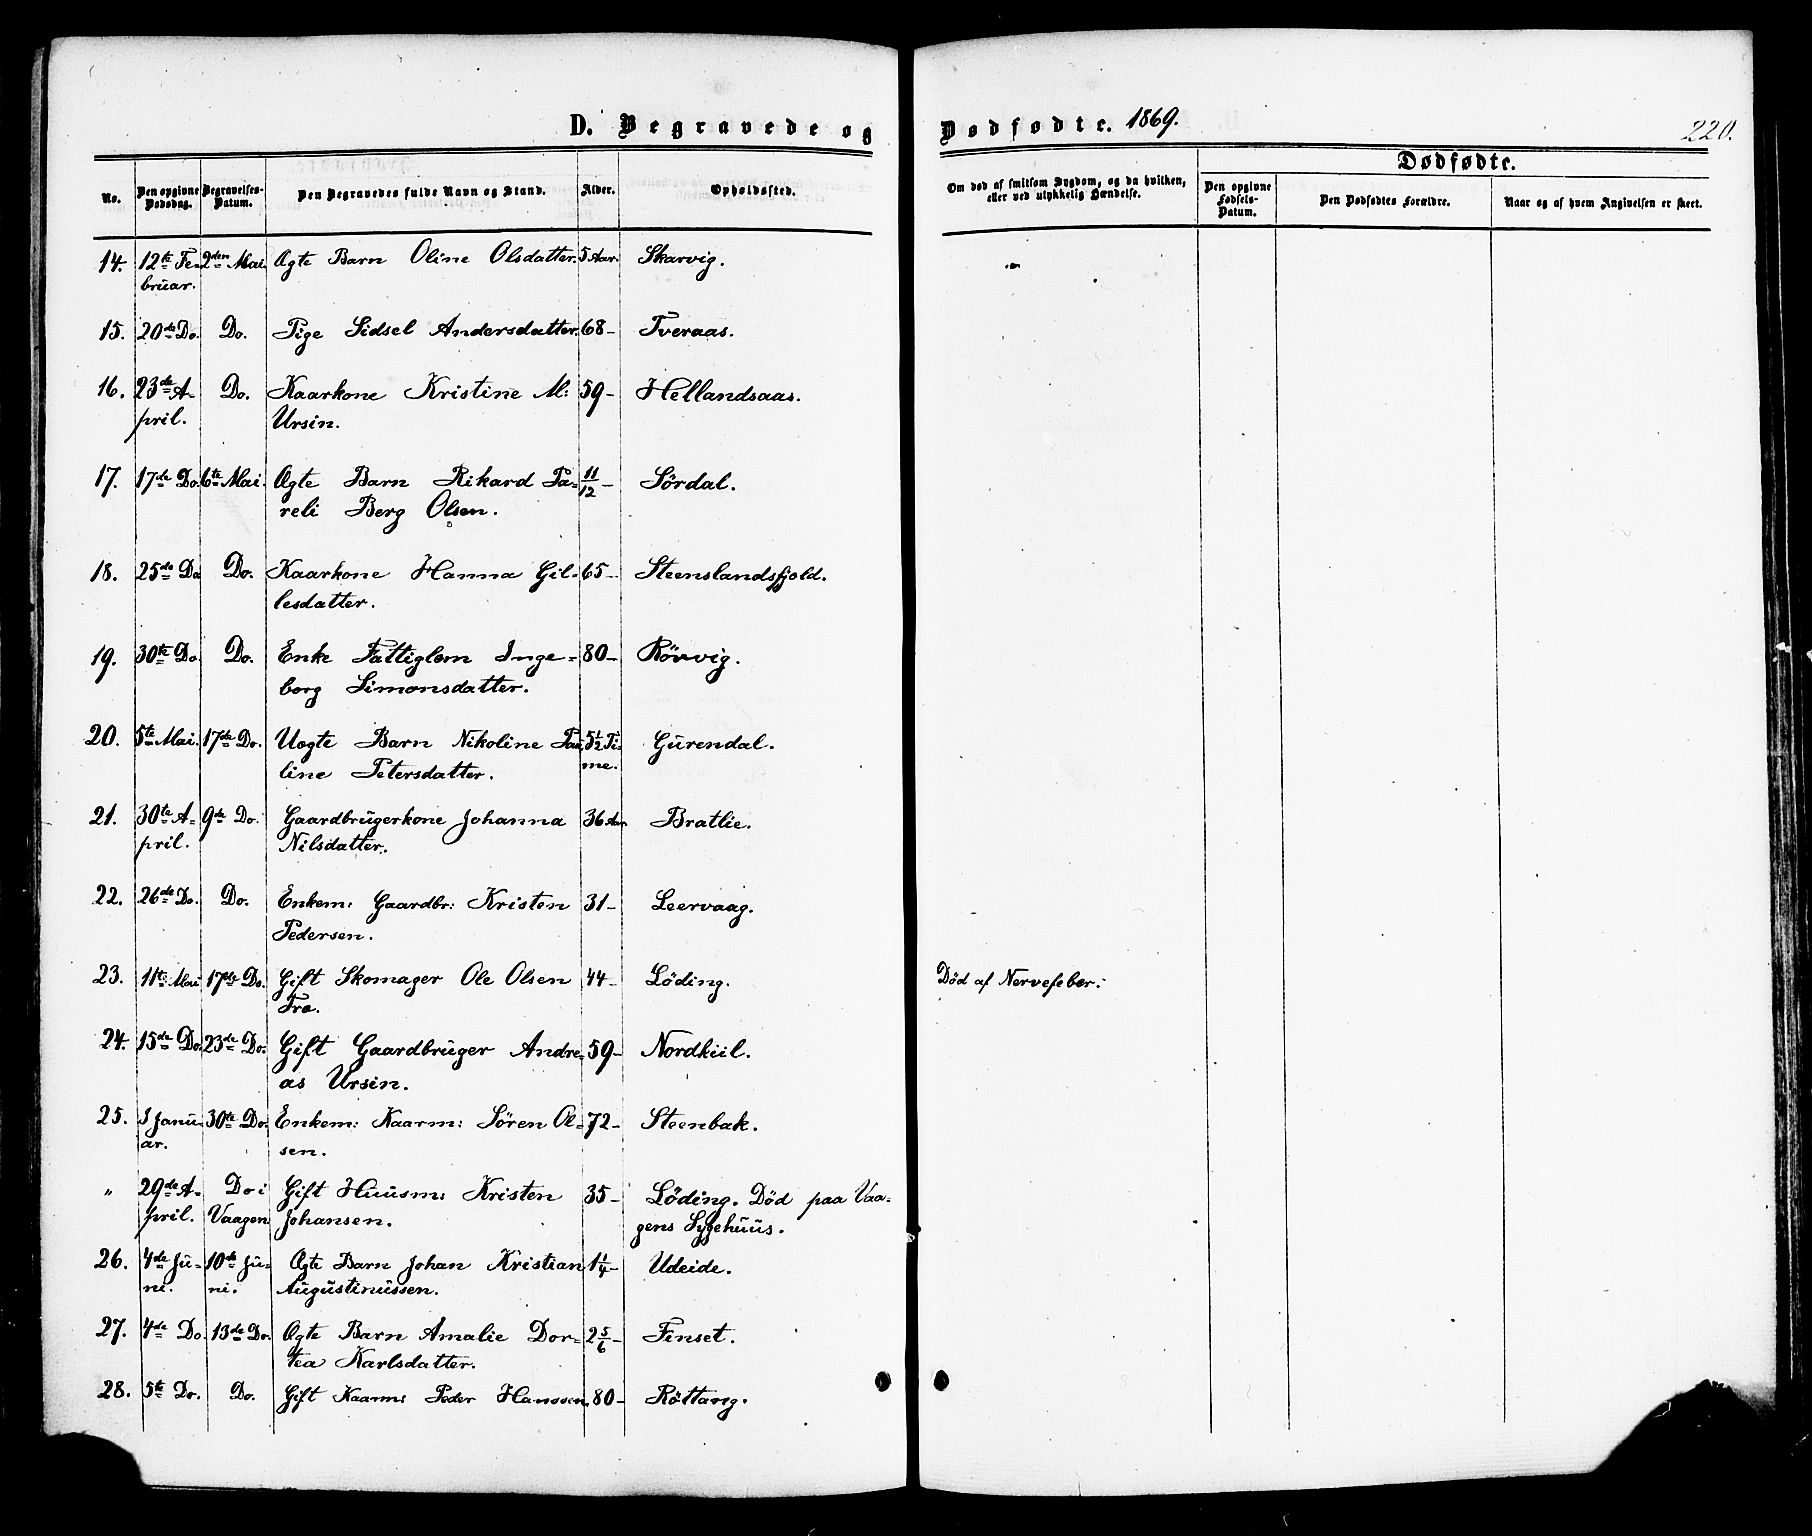 D. Begravede og Dødfødte. 1869. 220.
No. | Den opgivne Dødsdag. | Begravelses-Datum. | Den Begravedes fulde Navn og Stand. | Alder. | Opholdssted. | Om død af smitsom Sygdom, og da hvilken, eller ved ulykkelig Hændelse. | Dødfødte. | Den opgivne Fødsels-Datum. | Den Dødfødtes Forældre. | Naar og af hvem Angivelsen er skeet.
14. 12te Fe- 2den Mai. Ægte Barn Oline Olsdatter. 5 Aar. Skarvig.
bruar.
15. 20de Do. Do. Pige Sidsel Andersdatter. 68- Tveraas.
16. 23de A- Do. Kaarkone Kristine M: 59- Hellandsaas.
pril. Ursin.
17. 17de Do. 6te Mai. Ægte Barn Rikard Pa- 11/12- Sördal.
reli Berg Olsen.
18. 25de Do Do. Kaarkone Hanna Gil- 65- Steenslandsfjold.
lesdatter.
19. 30te Do Do. Enke Fattiglem Inge- 80- Rörvig.
borg Simonsdatter.
20. 5te Mai. 17de Do. Uægte Barn Nikoline Pau 5½ Ti- Gurendal.
line Petersdatter. me.
21. 30te A- 9de Do. Gaardbrugerkone Johanna 36 Aar. Bratlie.
pril. Nilsdatter.
22. 26de Do. Do. Enkem: Gaardbr: Kristen 31- Leervaag.
Pedersen.
23. 11te Mai 17de Do. Gift Skomager Ole Olsen 44- Löding. Död af Nervefeber.
Fre.
24. 15de Do. 23de Do. Gift Gaardbruger Andre- 59- Nordkiil.
as Ursin.
25. 1 Janu- 30te Do. Enkem: Kaarm: Sören Ol- 72- Steenbak.
ar. sen.
" 29de A- Do i Gift Huusm: Kristen 35- Löding. Död paa Vaa-
pril. Vaagen Johansen. gens Sygehuus.
26. 4de Ju- 10de Ju- Ægte Barn Johan Kristian 1¼- Udeide.
ni. ni. Augustinussen.
27. 4de Do. 13de Do. Ægte Barn Amalie Dor- 2 5/6- Finset.
tea Karlsdatter.
28. 5te Do. Do. Gift Kaarm: Peder Hanssen. 80- Röttang.